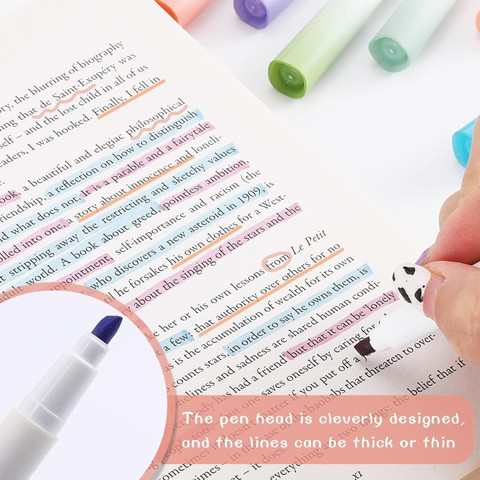 ory, the blurring of biography
ning that de Saint-Exupéry was
self – and the lost child in all of us
eaders, I was hooked. Finally, I fell in
book a beautiful and elegiac philosophical
friendship, a reflection on how to distinguish
ld what does not. It is a parable and a fairytale
lled into one, a story about innocence and loneli-
r stripping away the restricting and sketchy values
lth world. A book about greed, pointless ambition,
pointment, self-importance and racism (the
who discovers a new asteroid in 1909, is
l he forsakes his own clothes for a West-
y about the singing of the stars and the
from Le Petit
e her or his own lessons
few; that authority over others for no
as is the accumulation of wealth for its own
counts stars, in order to say he owns them, is
liness and sadness are shared human condi-
but that it can be lonely
as had a friend
saves oneself by caring for
if you put off a
baobabs that threaten to over
the belief that if
XI
The pen head is cleverly designed,
and the lines can be thick or thin